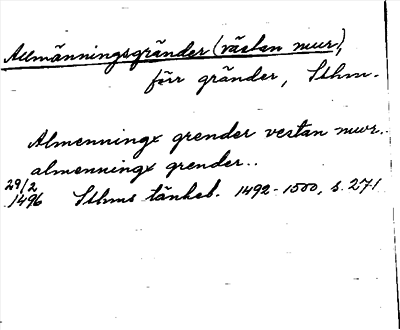 Allmänningsgränder (västan mur),
förr gränder, Sthm.
Almenningx grender vestan mur..
almenningx grender..
29/2
1496 Sthms tänkeb. 1492-1500, s. 271